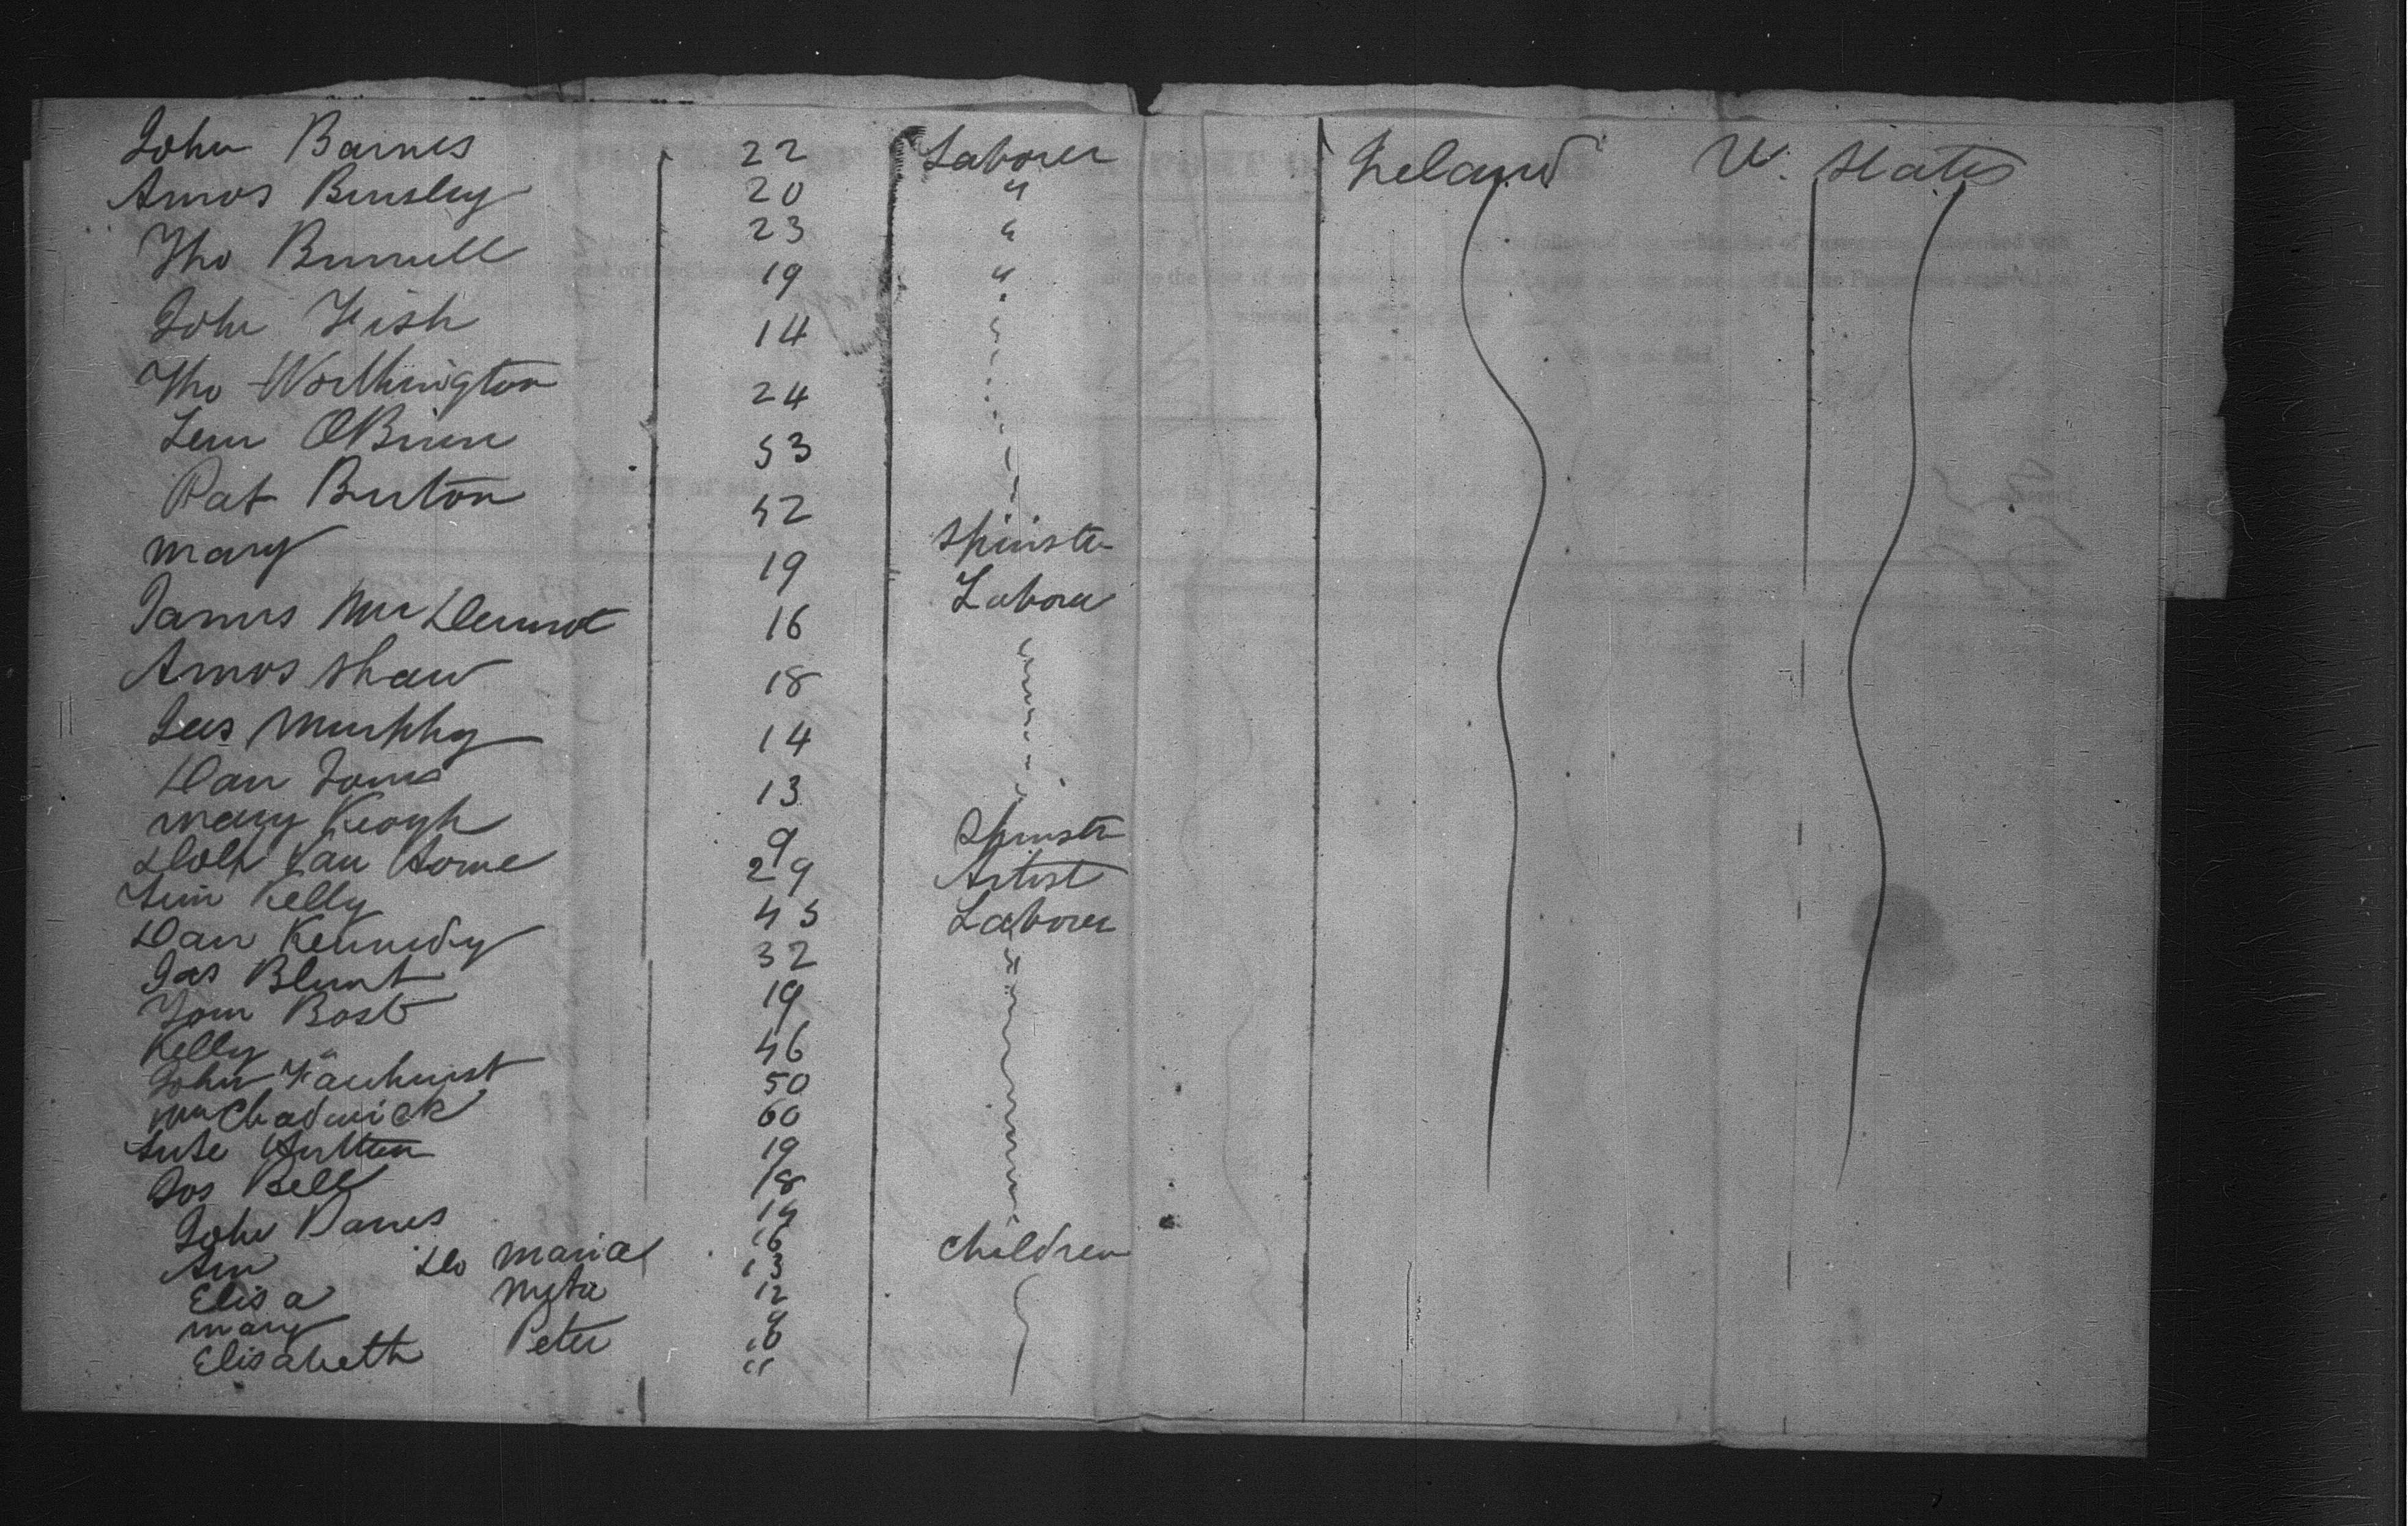 John Barnes 22 Laborer Ireland U. States
Amos Binsley 20 "
Tho Bunnell 23 "
John Fish 19 "
Tho Worthington 14
Lem OBrien 24
Pat Burton 53
Mary 52 Spinster
James McDermot 19 Laborer
Amos Shaw 16
Murphy 18
Dan Jones 14
Mary Keogh 13 Spinstr
Van Horne 9 Artist
Tim Kelly 29 Laborer
Dan Kennedy 45
Jas Blunt 32
Tom Bost 19
Kelly 46
John Fairhurst 50
Wm Chadwick 60
19
Jos Bell 18
John
Ann Do Maria 16 Children
Elisa Meta 13
Mary 12
Elisabeth Peter 9
10
11